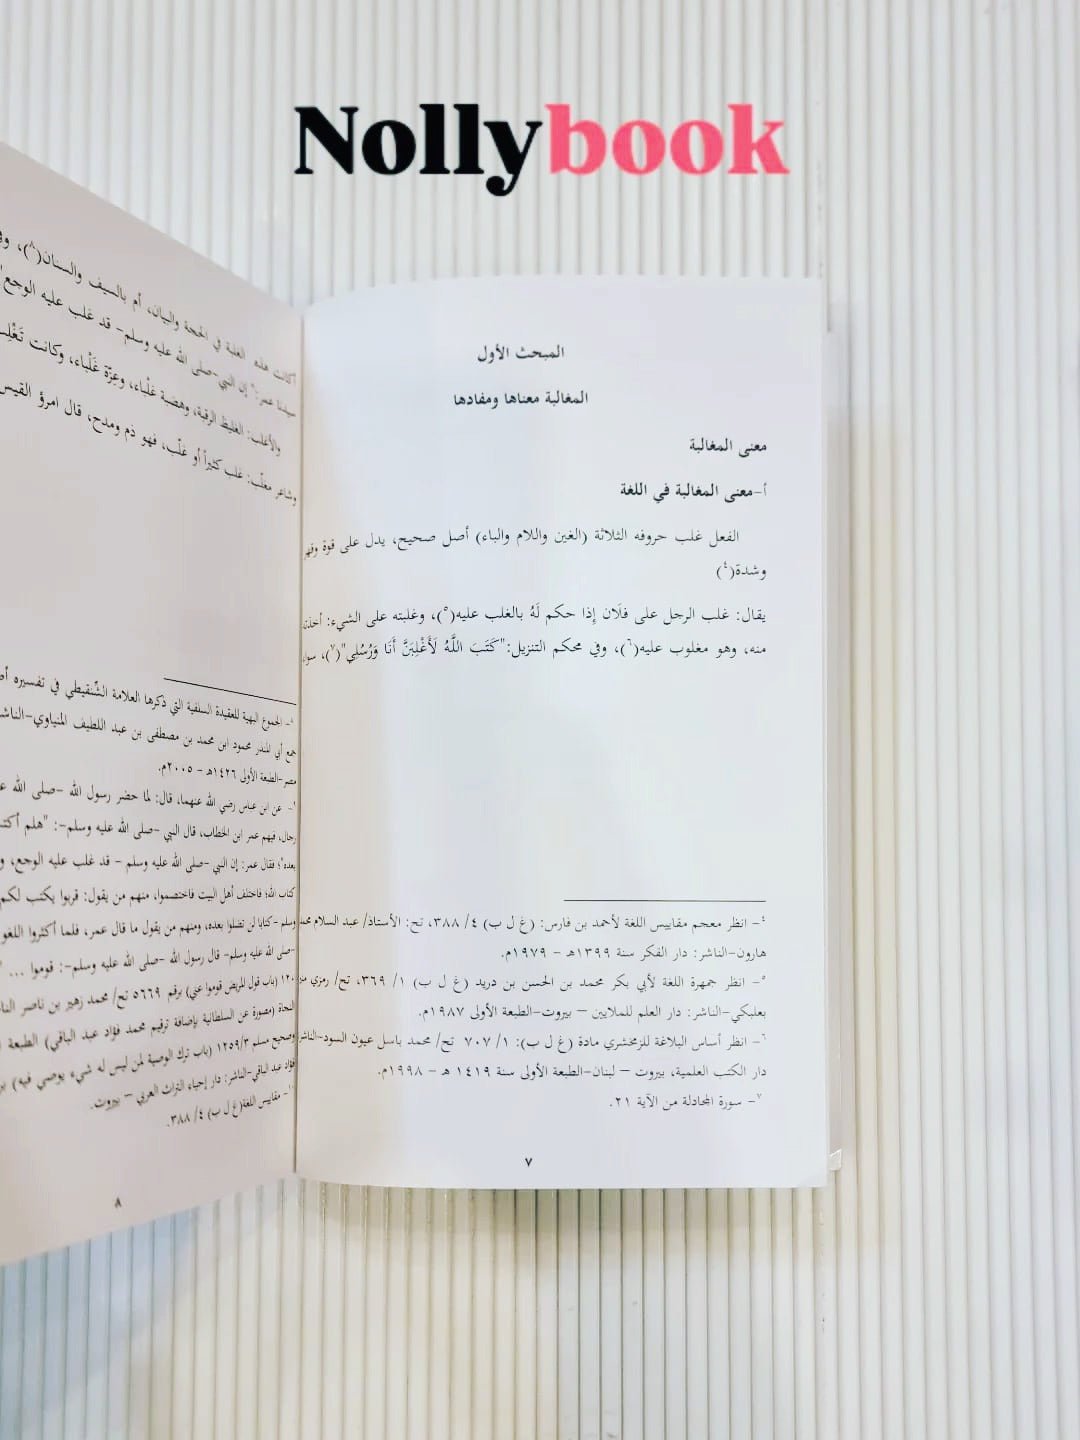 Nollybook
المبحث الأول
المغالبة معناها ومفادها
معنى المغالبة
أ-معنى المغالبة في اللغة
الفعل غلب حروفه الثلاثة (الغين واللام والباء) أصل صحيح، يدل على قوة وقهر
وشدة(٤)
يقال: غلب الرجل على فلَان إِذا حكم لَهُ بالغلب عليه(٥)، وغلبته على الشيء: أخذته
منه، وهو مغلوب عليه(٦)، وفي محكم التنزيل:"كَتَبَ اللَّهُ لَأَغْلِبَنَّ أَنَا وَرُسُلِي"(٧)، سواء
٤- انظر معجم مقاييس اللغة لأحمد بن فارس: (غ ل ب) ٤/ ٣٨٨، تح: الأستاذ/ عبد السلام محمد
هارون-الناشر: دار الفكر سنة ١٣٩٩هـ - ١٩٧٩م.
٥- انظر جمهرة اللغة لأبي بكر محمد بن الحسن بن دريد (غ ل ب) ١/ ٣٦٩، تح/ رمزي منير
بعلبكي-الناشر: دار العلم للملايين – بيروت-الطبعة الأولى ١٩٨٧م.
٦- انظر أساس البلاغة للزمخشري مادة (غ ل ب): ١/ ٧٠٧ تح/ محمد باسل عيون السود-الناشر
دار الكتب العلمية، بيروت – لبنان-الطبعة الأولى سنة ١٤١٩ هـ - ١٩٩٨م.
٧- سورة المجادلة من الآية ٢١.
٧
أكانت هذه الغلبة في الحجة والبيان، أم بالسيف والسنان(٨)،
سيدنا عمر:" إن النبي-صلى الله عليه وسلم- قد غلب عليه الوجع"
والأغلب: الغليظ الرقبة، وهضبة غلْباء، وعِزّة غَلْباء، وكانت تَغْلِب
وشاعر مغلّب: غلب كثيراً أو غلّب، فهو ذم ومدح، قال امرؤ القيس
٨- الجموع البهية للعقيدة السلفية التي ذكرها العلامة الشّنقيطي في تفسيره
جمع أبي المنذر محمود ابن محمد بن مصطفى بن عبد اللطيف المنياوي-الناشر
مصر-الطبعة الأولى ١٤٢٦هـ - ٢٠٠٥م.
عن ابن عباس رضي الله عنهما، قال: لما حضر رسول الله -صلى الله
رجال، فيهم عمر ابن الخطاب، قال النبي -صلى الله عليه وسلم-: "هلم أكتب
بعده"؛ فقال عمر: إن النبي -صلى الله عليه وسلم - قد غلب عليه الوجع،
كتاب الله؛ فاختلف أهل البيت فاختصموا، منهم من يقول: قربوا يكتب لكم
وسلم -كتابا لن تضلوا بعده، ومنهم من يقول ما قال عمر، فلما أكثروا اللغو
-صلى الله عليه وسلم- قال رسول الله -صلى الله عليه وسلم-: قوموا ...
١٢٠ (باب قول المريض قوموا عني) برقم ٥٦٦٩ تح/ محمد زهير بن ناصر
النجاة (مصورة عن السلطانية بإضافة ترقيم محمد فؤاد عبد الباقي) الطبعة
وصحيح مسلم ١٢٥٩/٣ (باب ترك الوصية لمن ليس له شيء يوصي فيه)
فؤاد عبد الباقي-الناشر: دار إحياء التراث العربي – بيروت.
- مقاييس اللغة(غ ل ب) ٤/ ٣٨٨.
٨